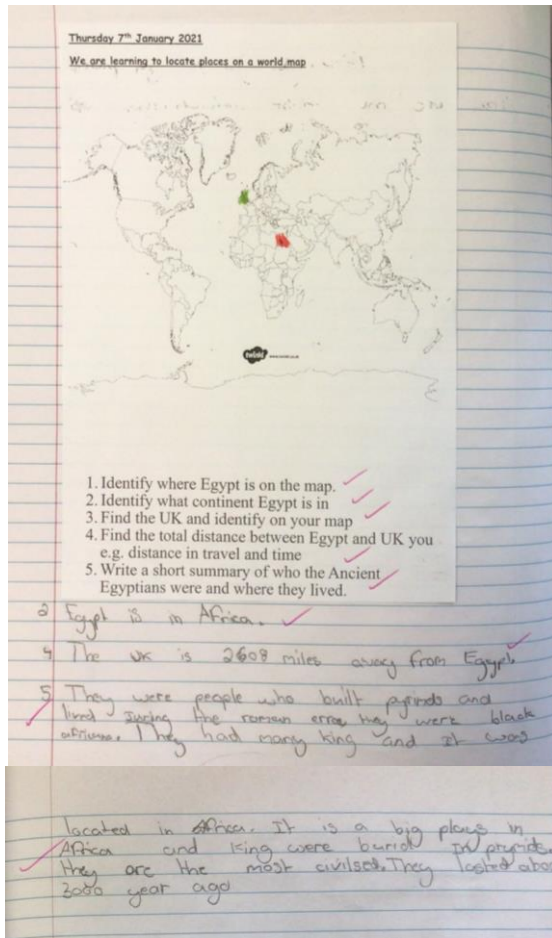 Thursday 7th January 2021
We are learning to locate places on a world map
twinkl www.twinkl.co.uk
1. Identify where Egypt is on the map.
2. Identify what continent Egypt is in
3. Find the UK and identify on your map
4. Find the total distance between Egypt and UK you
e.g. distance in travel and time
5. Write a short summary of who the Ancient
Egyptians were and where they lived.
2 Egypt is in Africa.
4 The UK is 2608 miles away from Egypt.
5 They were people who built pyrinds and
lived during the roman error they were black
africans. They had many king and it was
located in Africa. It is a big place in
Africa and king were buriol in pryrids.
they are the most civilsed. They lasted abo
3000 year ago